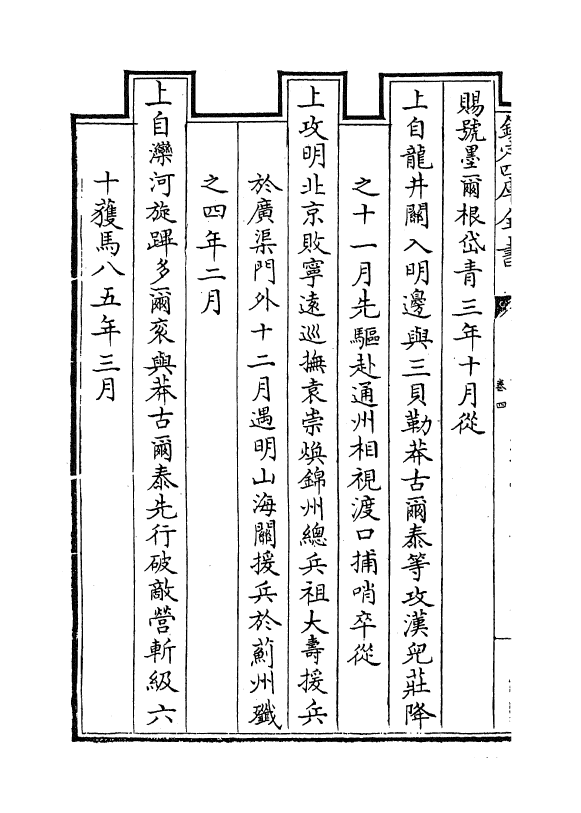 欽定四庫全書
卷四
賜號墨爾根岱青三年十月從
上自龍井關入明邊與三貝勒莽古爾泰等攻漢兒莊降
之十一月先驅赴通州相視渡口捕哨卒從
上攻明北京敗寧遠巡撫袁崇煥錦州總兵祖大壽援兵
於廣渠門外十二月遇明山海關援兵於薊州殲
之四年二月
上自灤河旋蹕多爾衮與莽古爾泰先行破敵營斬級六
十獲馬八五年三月